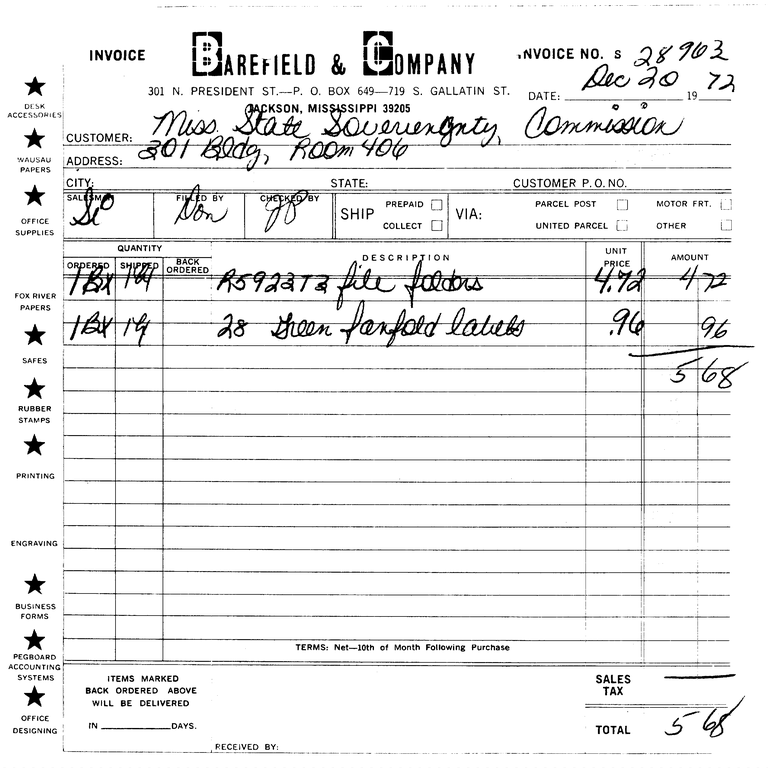 INVOICE
BAREFIELD & COMPANY
INVOICE NO. S 28963
301 N. PRESIDENT ST.—P. O. BOX 649—719 S. GALLATIN ST.
JACKSON, MISSISSIPPI 39205
DATE: Dec 20 19 72
CUSTOMER: Miss. State Sovereignty Commission
ADDRESS: 301 Bldg, Room 406
CITY: STATE: CUSTOMER P.O. NO.
SALESMAN FILLED BY Don CHECKED BY
SHIP PREPAID COLLECT VIA: PARCEL POST MOTOR FRT.
UNITED PARCEL OTHER
QUANTITY
ORDERED SHIPPED BACK ORDERED DESCRIPTION UNIT PRICE AMOUNT
1 BX R5923T3 file folders 4.72 4 72
1 BX 28 Green fanfold labels .96 96
5 68
TERMS: Net—10th of Month Following Purchase
ITEMS MARKED
BACK ORDERED ABOVE
WILL BE DELIVERED
IN DAYS.
SALES TAX
TOTAL 5 68
RECEIVED BY:
DESK ACCESSORIES
WAUSAU PAPERS
OFFICE SUPPLIES
FOX RIVER PAPERS
SAFES
RUBBER STAMPS
PRINTING
ENGRAVING
BUSINESS FORMS
PEGBOARD ACCOUNTING SYSTEMS
OFFICE DESIGNING